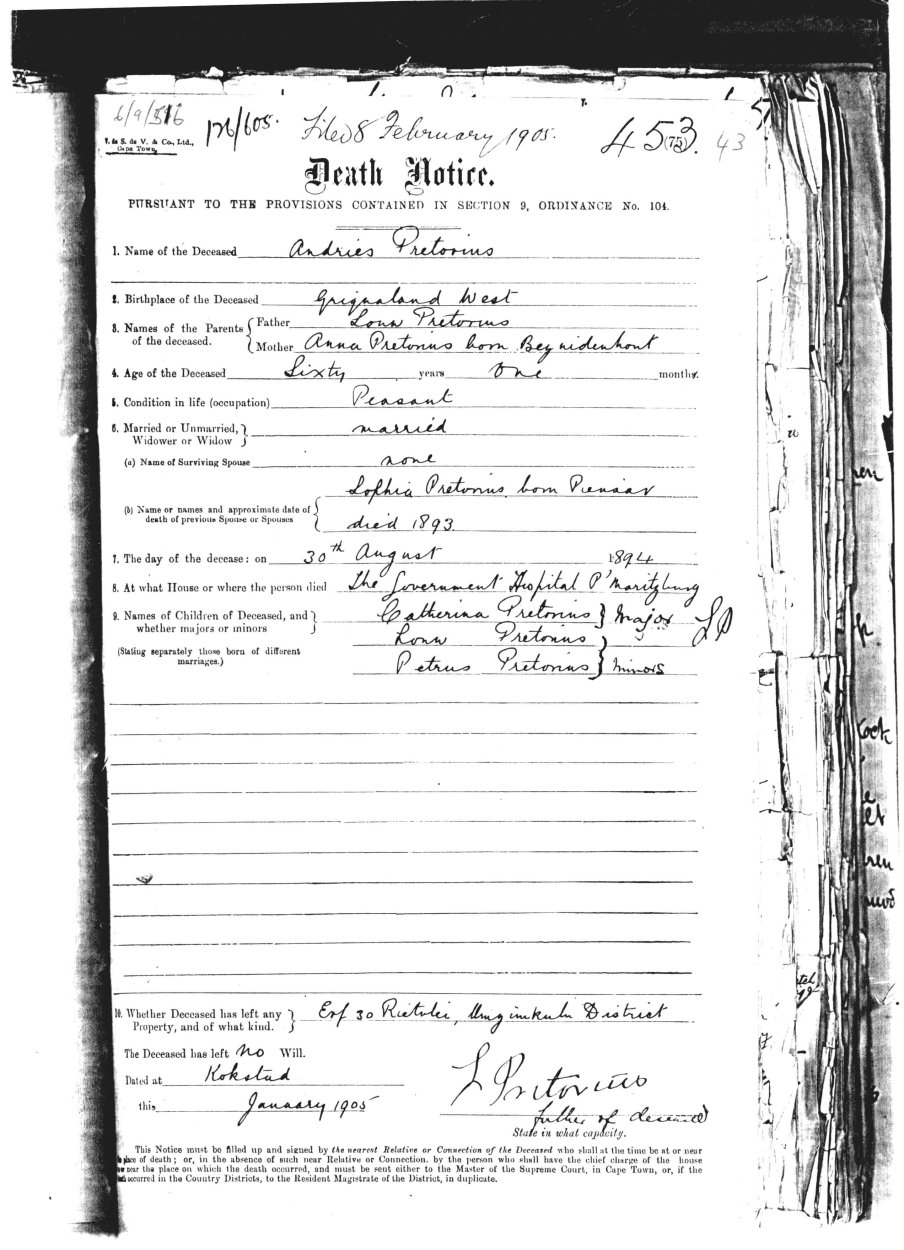 6/9/516
126/605.
Filed 8 February 1905.
453. (75) 43
V. de S. de V. & Co., Ltd.,
Cape Town.
Death Notice.
PURSUANT TO THE PROVISIONS CONTAINED IN SECTION 9, ORDINANCE No. 104.
1. Name of the Deceased Andries Pretorius
2. Birthplace of the Deceased Griqualand West
3. Names of the Parents of the deceased. { Father Louw Pretorius
Mother Anna Pretorius born Beynidenhout
4. Age of the Deceased Sixty years One months.
5. Condition in life (occupation) Peasant
6. Married or Unmarried, Widower or Widow } married
(a) Name of Surviving Spouse none
Sophia Pretorius born Pienaar
(b) Name or names and approximate date of death of previous Spouse or Spouses { died 1893.
7. The day of the decease: on 30th August 1894
8. At what House or where the person died The Government Hospital P'Maritzburg
9. Names of Children of Deceased, and whether majors or minors } Catherina Pretorius } Major LP
Louw Pretorius
(Stating separately those born of different marriages.) Petrus Pretorius } minors
10. Whether Deceased has left any Property, and of what kind. } Erf 30 Rietvlei, Umzimkulu District
The Deceased has left No Will.
Dated at Kokstad
L Pretorius
this January 1905
father of deceased
State in what capacity.
This Notice must be filled up and signed by the nearest Relative or Connection of the Deceased who shall at the time be at or near
place of death; or, in the absence of such near Relative or Connection, by the person who shall have the chief charge of the house
near the place on which the death occurred, and must be sent either to the Master of the Supreme Court, in Cape Town, or, if the
occurred in the Country Districts, to the Resident Magistrate of the District, in duplicate.